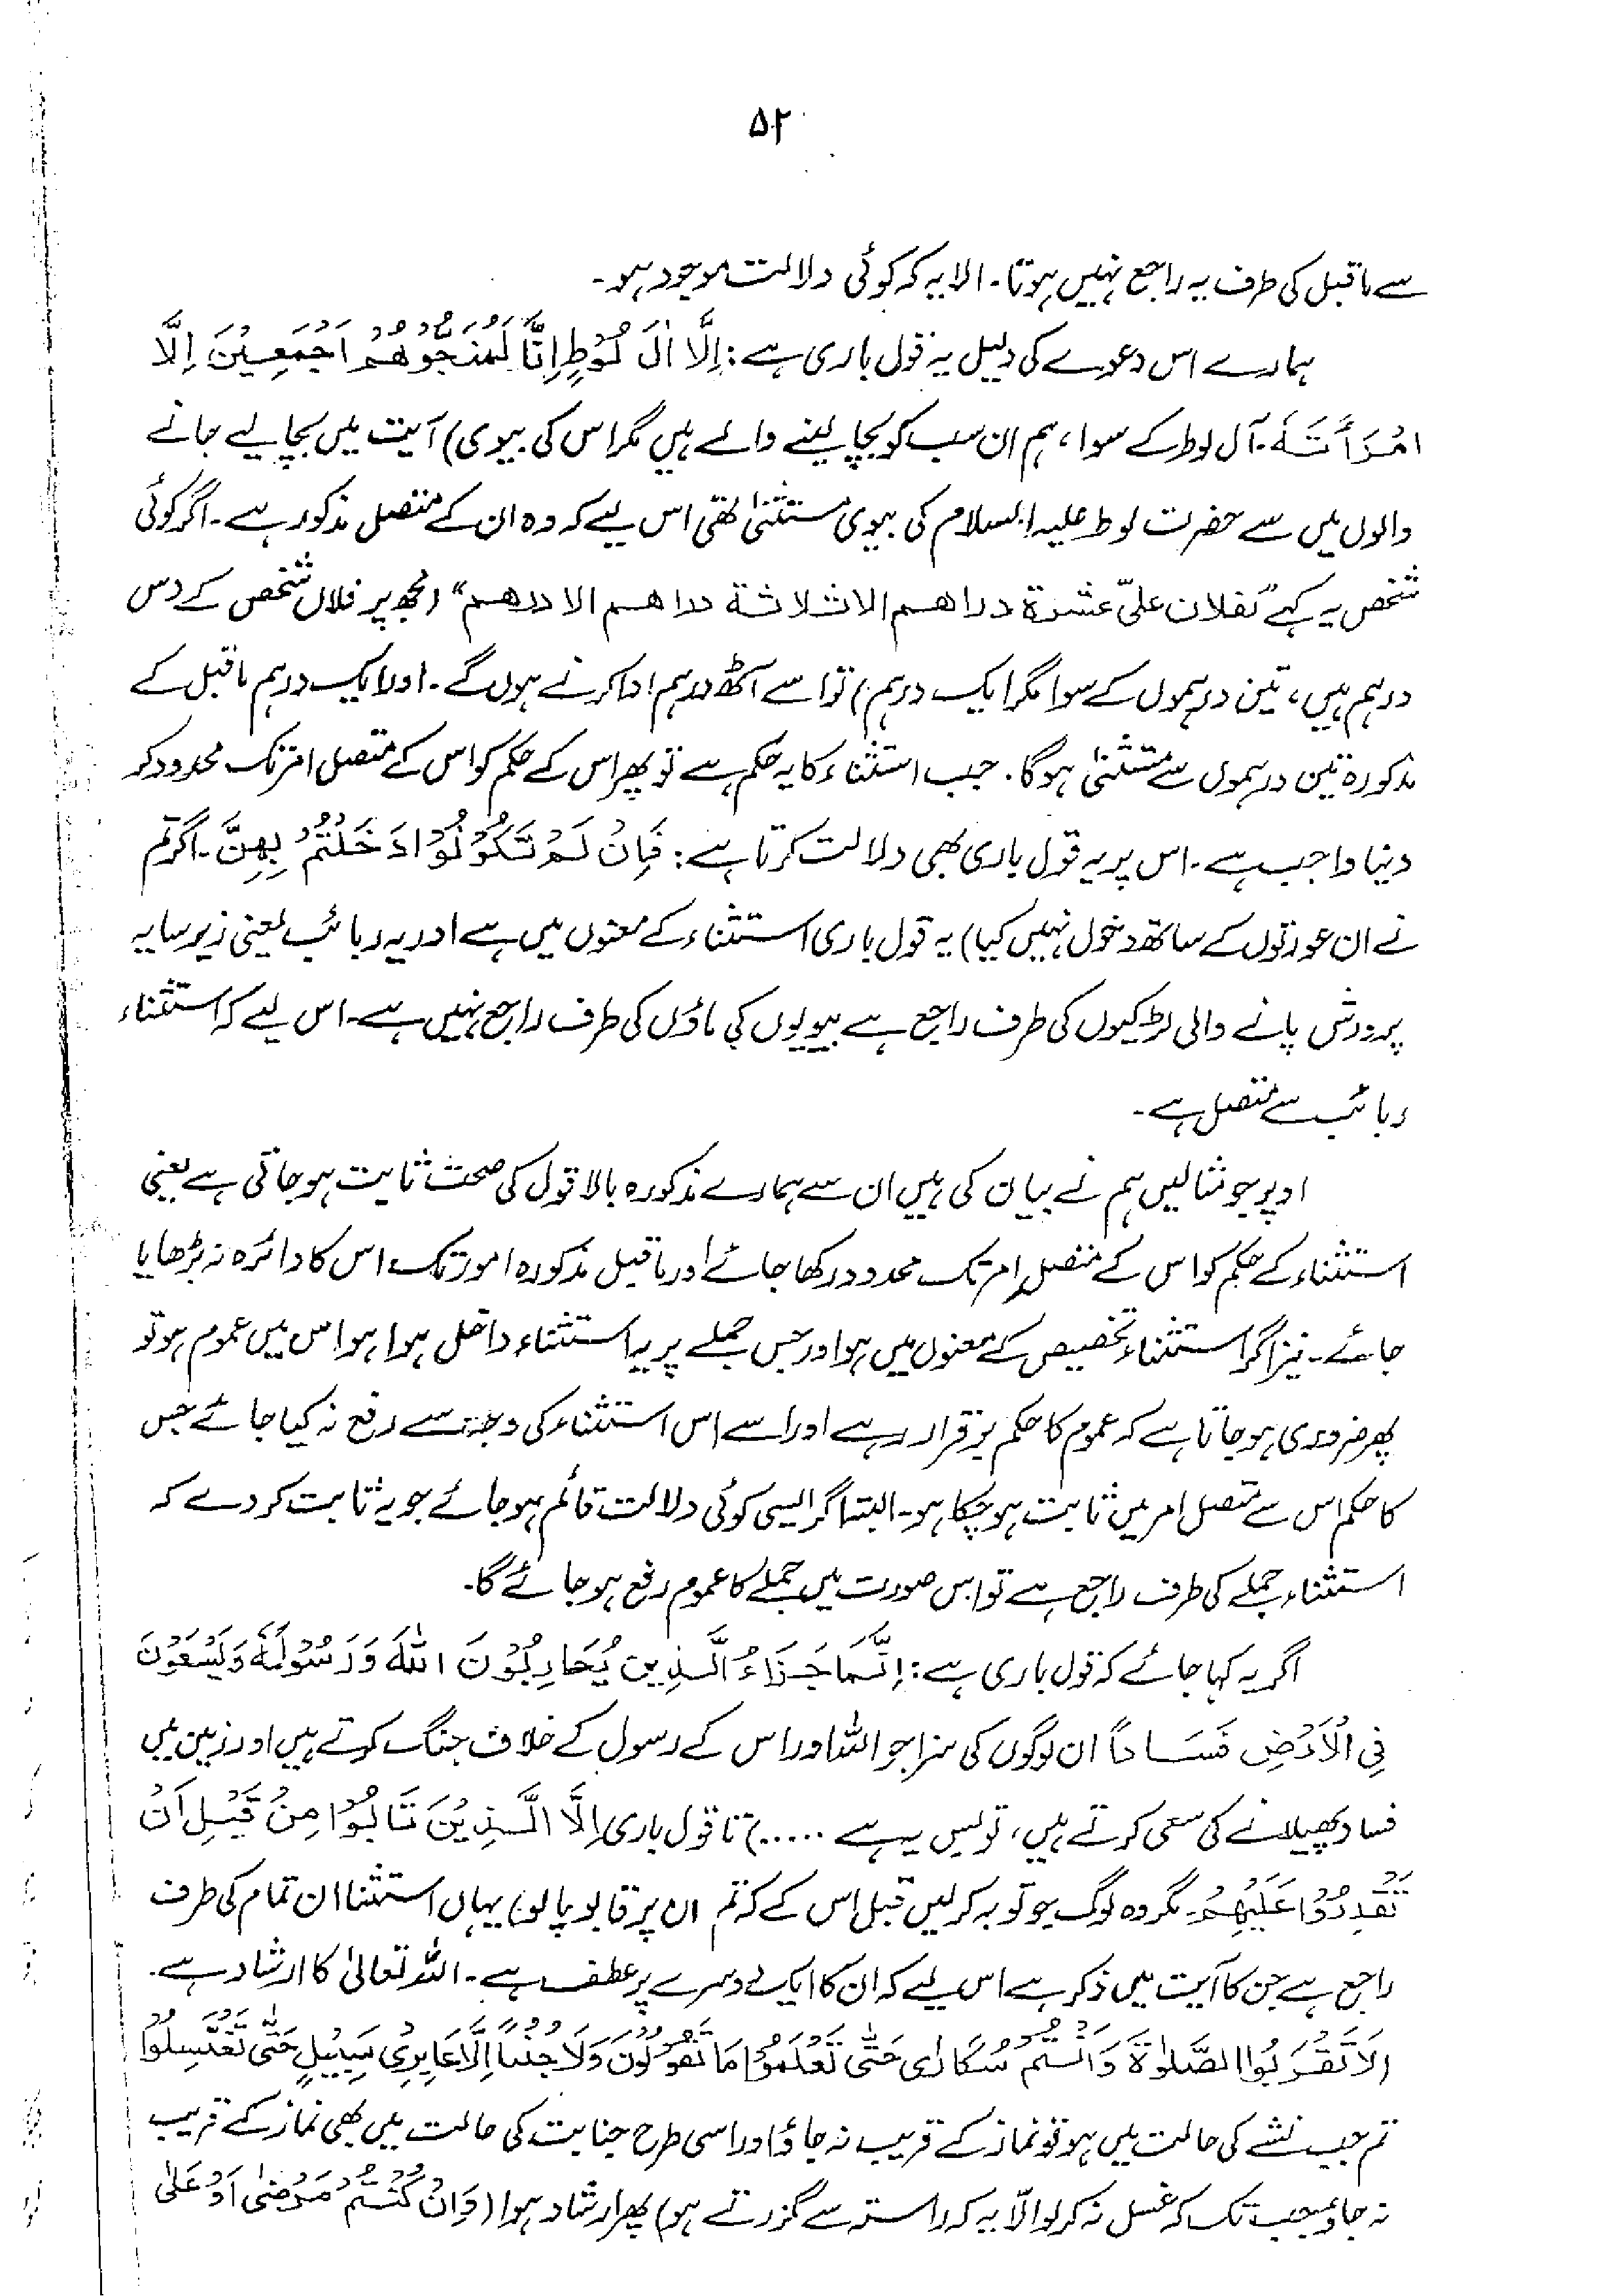 ۵۲
سے ماقبل کی طرف یہ راجع نہیں ہوتا۔ الا یہ کہ کوئی دلالت موجود ہو۔
ہمارے اس دعوے کی دلیل یہ قول باری ہے: اِلَّا اٰلَ لُوْطٍ اِنَّا لَمُنَجُّوْهُمْ اَجْمَعِيْنَ اِلَّا
امْرَأَتَهٗ۔ آل لوط کے سوا، ہم ان سب کو بچا لینے والے ہیں مگر اس کی بیوی) آیت میں بچا لیے جانے
والوں میں سے حضرت لوط علیہ السلام کی بیوی مستثنیٰ تھی اس لیے کہ وہ ان کے متصل مذکور ہے۔ اگر کوئی
شخص یہ کہے "لفلان علیّ عشرۃ دراھم الا ثلاثۃ دراھم الا درھم" (مجھ پر فلاں شخص کے دس
درہم ہیں، تین درہموں کے سوا مگر ایک درہم) تو اسے آٹھ درہم ادا کرنے ہوں گے۔ اور ایک درہم ماقبل کے
مذکورہ تین درہموں سے مستثنیٰ ہوگا۔ جب استثناء کا یہ حکم ہے تو پھر اس کے حکم کو اس کے متصل امر تک محدود کر
دینا واجب ہے۔ اس پر یہ قول باری بھی دلالت کرتا ہے: فَاِنْ لَمْ تَكُوْنُوْا دَخَلْتُمْ بِهِنَّ۔ اگر تم
نے ان عورتوں کے ساتھ دخول نہیں کیا) یہ قول باری استثناء کے معنوں میں ہے اور یہ ربائب یعنی زیر سایہ
پرورش پانے والی لڑکیوں کی طرف راجع ہے بیویوں کی ماؤں کی طرف راجع نہیں ہے۔ اس لیے کہ استثناء
ربائب سے متصل ہے۔
اوپر جو مثالیں ہم نے بیان کی ہیں ان سے ہمارے مذکورہ بالا قول کی صحت ثابت ہو جاتی ہے یعنی
استثناء کے حکم کو اس کے متصل امر تک محدود رکھا جائے اور ماقبل مذکورہ امور تک اس کا دائرہ نہ بڑھایا
جائے۔ نیز اگر استثناء تخصیص کے معنوں میں ہو اور جس جملے پر یہ استثناء داخل ہوا ہو اس میں عموم ہو تو
پھر ضروری ہو جاتا ہے کہ عموم کا حکم برقرار رہے اور اسے اس استثناء کی وجہ سے رفع نہ کیا جائے جس
کا حکم اس سے متصل امر میں ثابت ہو چکا ہو۔ البتہ اگر ایسی کوئی دلالت قائم ہو جائے جو یہ ثابت کر دے کہ
استثناء جملے کی طرف راجع ہے تو اس صورت میں جملے کا عموم رفع ہو جائے گا۔
اگر یہ کہا جائے کہ قول باری ہے: اِنَّمَا جَزَاءُ الَّذِيْنَ يُحَارِبُوْنَ اللّٰهَ وَرَسُوْلَهٗ وَيَسْعَوْنَ
فِي الْاَرْضِ فَسَادًا ان لوگوں کی سزا جو اللہ اور اس کے رسول کے خلاف جنگ کرتے ہیں اور زمین میں
فساد پھیلانے کی سعی کرتے ہیں، تو بس یہ ہے .....) تا قول باری اِلَّا الَّذِيْنَ تَابُوْا مِنْ قَبْلِ اَنْ
تَقْدِرُوْا عَلَيْهِمْ۔ مگر وہ لوگ جو توبہ کر لیں قبل اس کے کہ تم ان پر قابو پالو) یہاں استثنا ان تمام کی طرف
راجع ہے جن کا آیت میں ذکر ہے اس لیے کہ ان کا ایک دوسرے پر عطف ہے۔ اللہ تعالیٰ کا ارشاد ہے۔
(لَا تَقْرَبُوا الصَّلٰوةَ وَاَنْتُمْ سُكَارٰى حَتّٰى تَعْلَمُوْا مَا تَقُوْلُوْنَ وَلَا جُنُبًا اِلَّا عَابِرِيْ سَبِيْلٍ حَتّٰى تَغْتَسِلُوْا
تم جب نشے کی حالت میں ہو تو نماز کے قریب نہ جاؤ اور اسی طرح جنابت کی حالت میں بھی نماز کے قریب
نہ جاؤ جب تک کہ غسل نہ کر لو الّا یہ کہ راستہ سے گزرتے ہو) پھر ارشاد ہوا (وَاِنْ كُنْتُمْ مَرْضٰى اَوْ عَلٰى